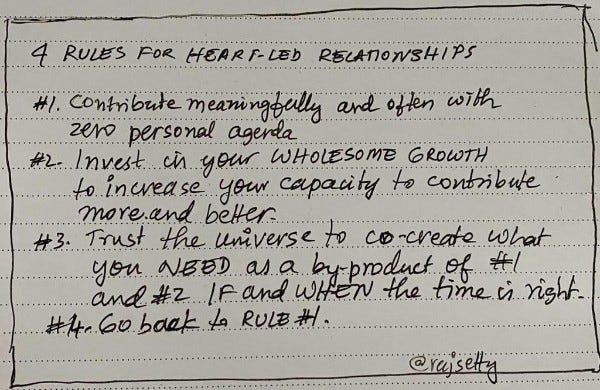 4 RULES FOR HEART-LED RELATIONSHIPS
#1. Contribute meaningfully and often with
zero personal agenda
#2. Invest in your WHOLESOME GROWTH
to increase your capacity to contribute
more and better.
#3. Trust the universe to co-create what
you NEED as a by-product of #1
and #2 IF and WHEN the time is right.
#4. Go back to RULE #1.
@rajsetty